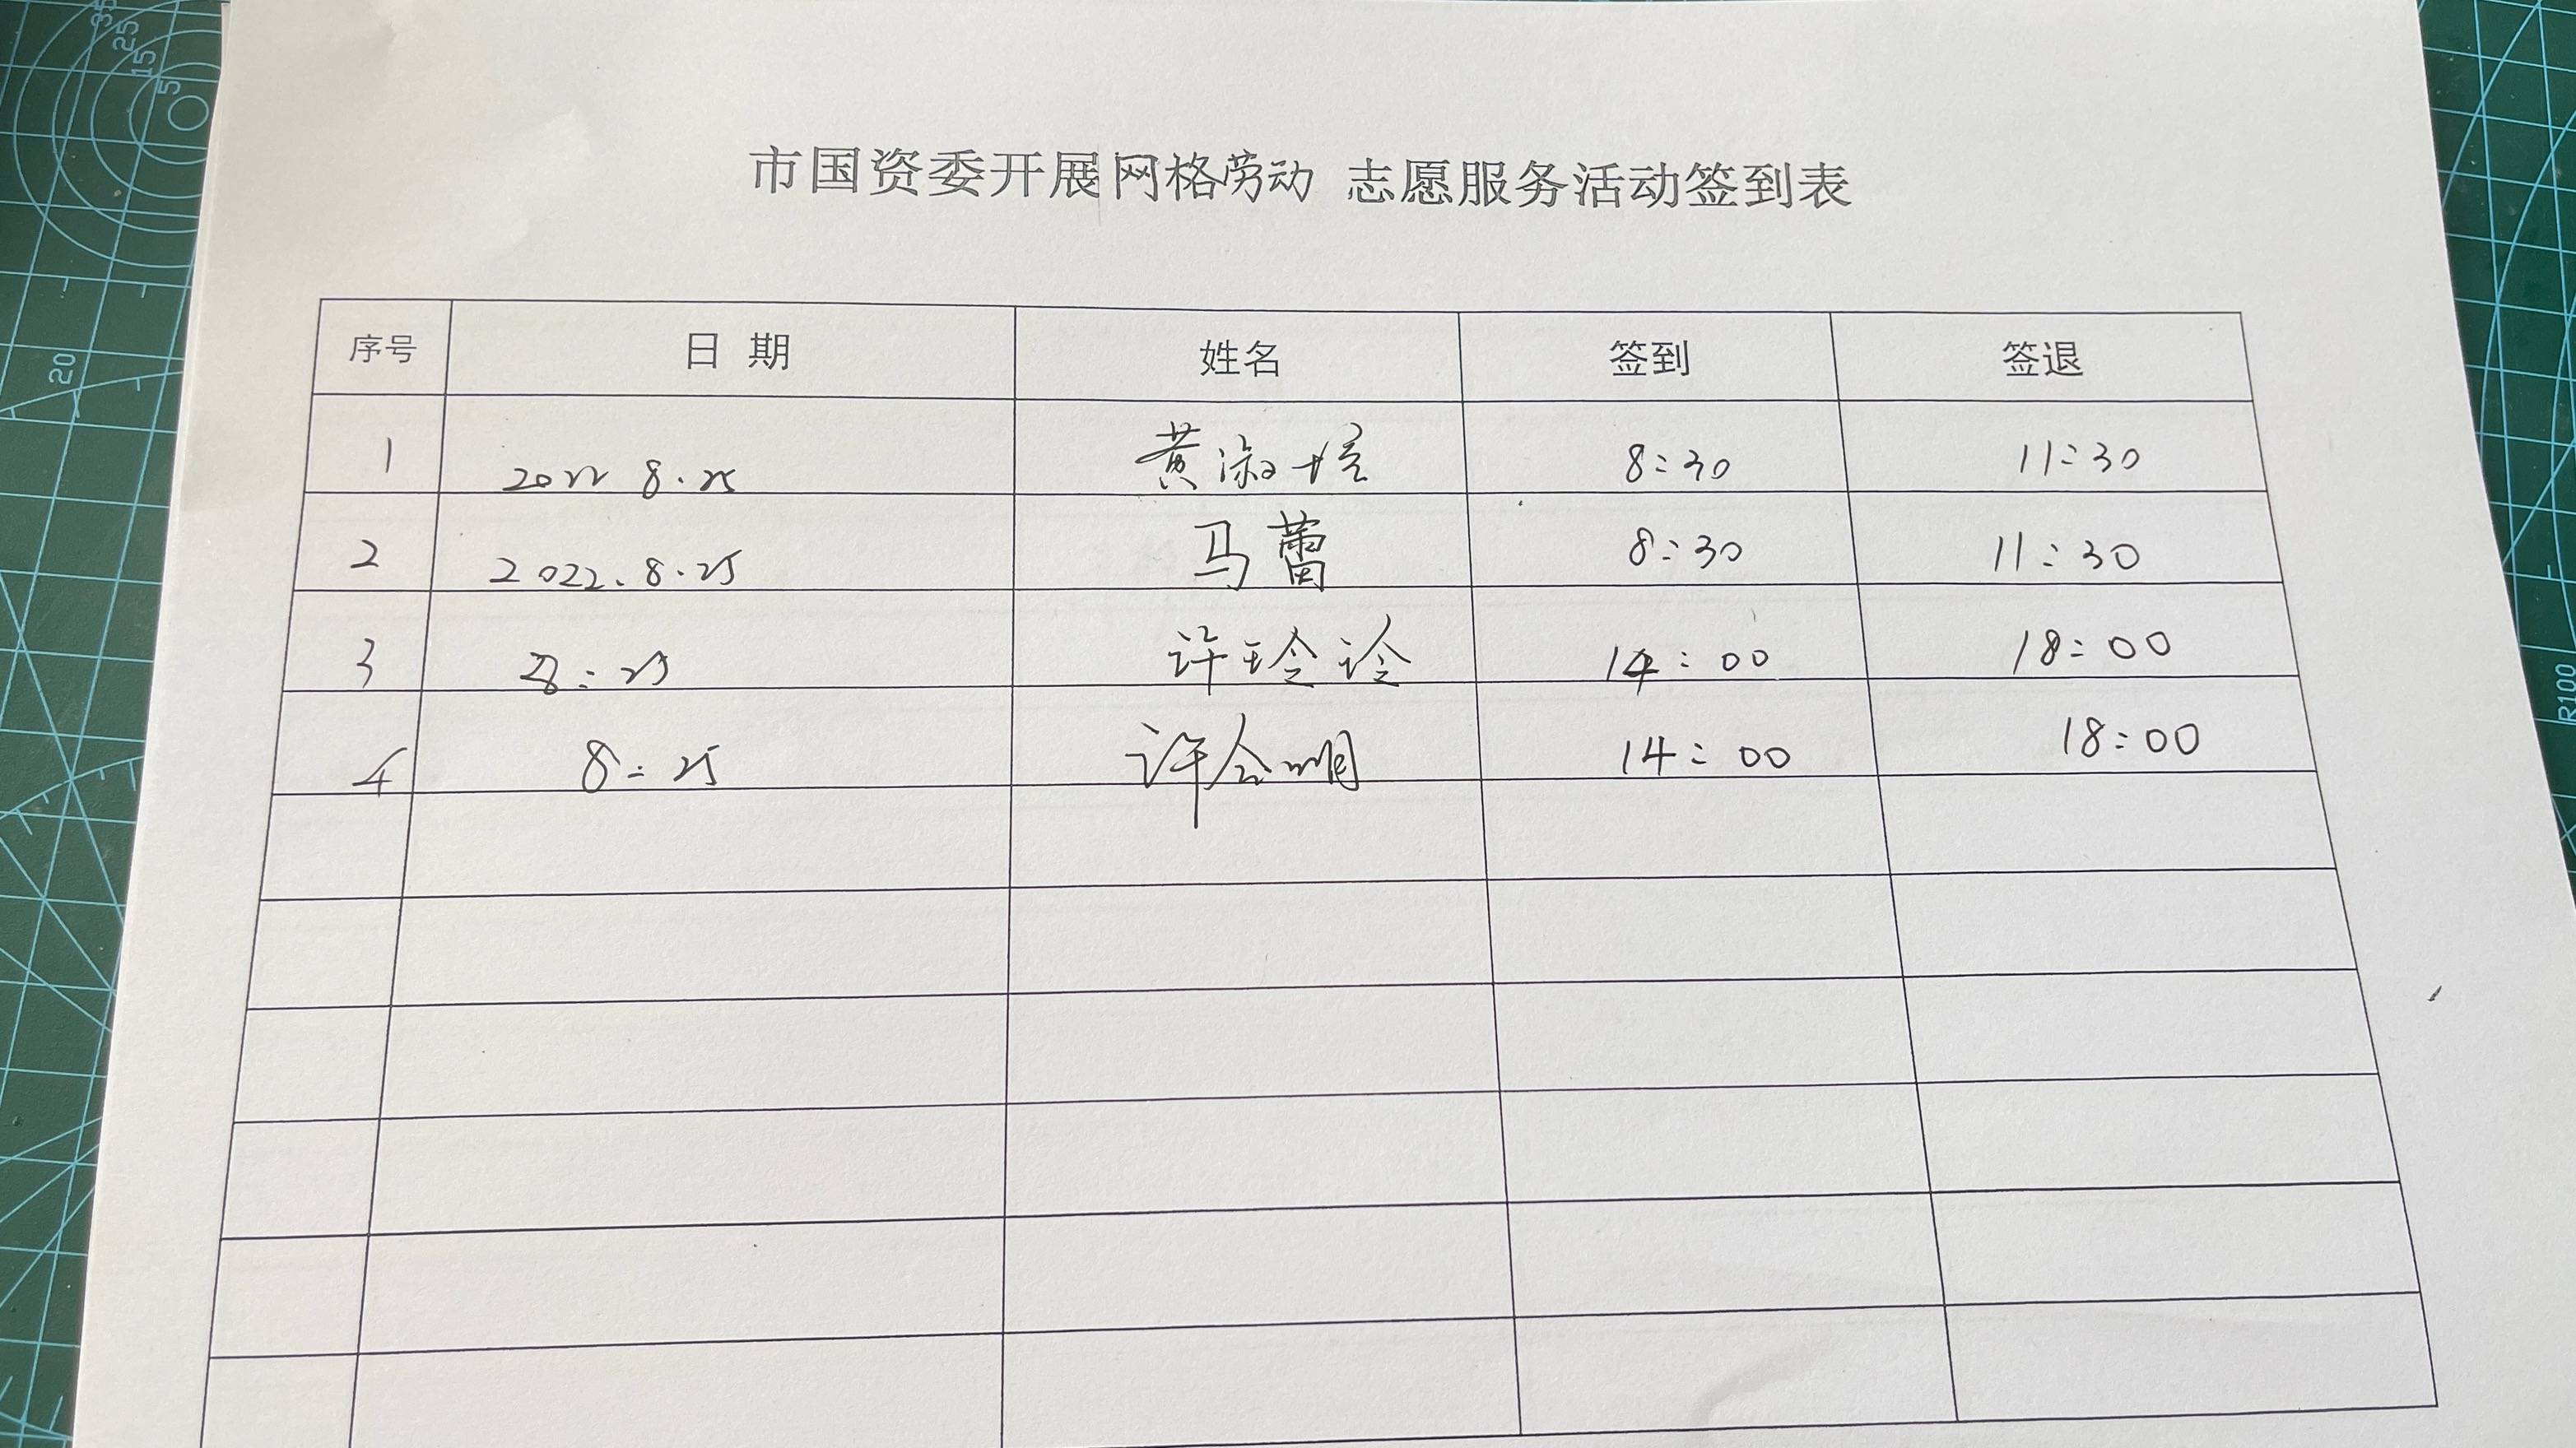 市国资委开展网格劳动 志愿服务活动签到表
序号 日 期 姓名 签到 签退
1 2022 8.25 黄淑 8:30 11:30
2 2022.8.25 马蕾 8:30 11:30
3 8:25 许玲玲 14:00 18:00
4 8:25 许合明 14:00 18:00
35
25
15
5
20
R100